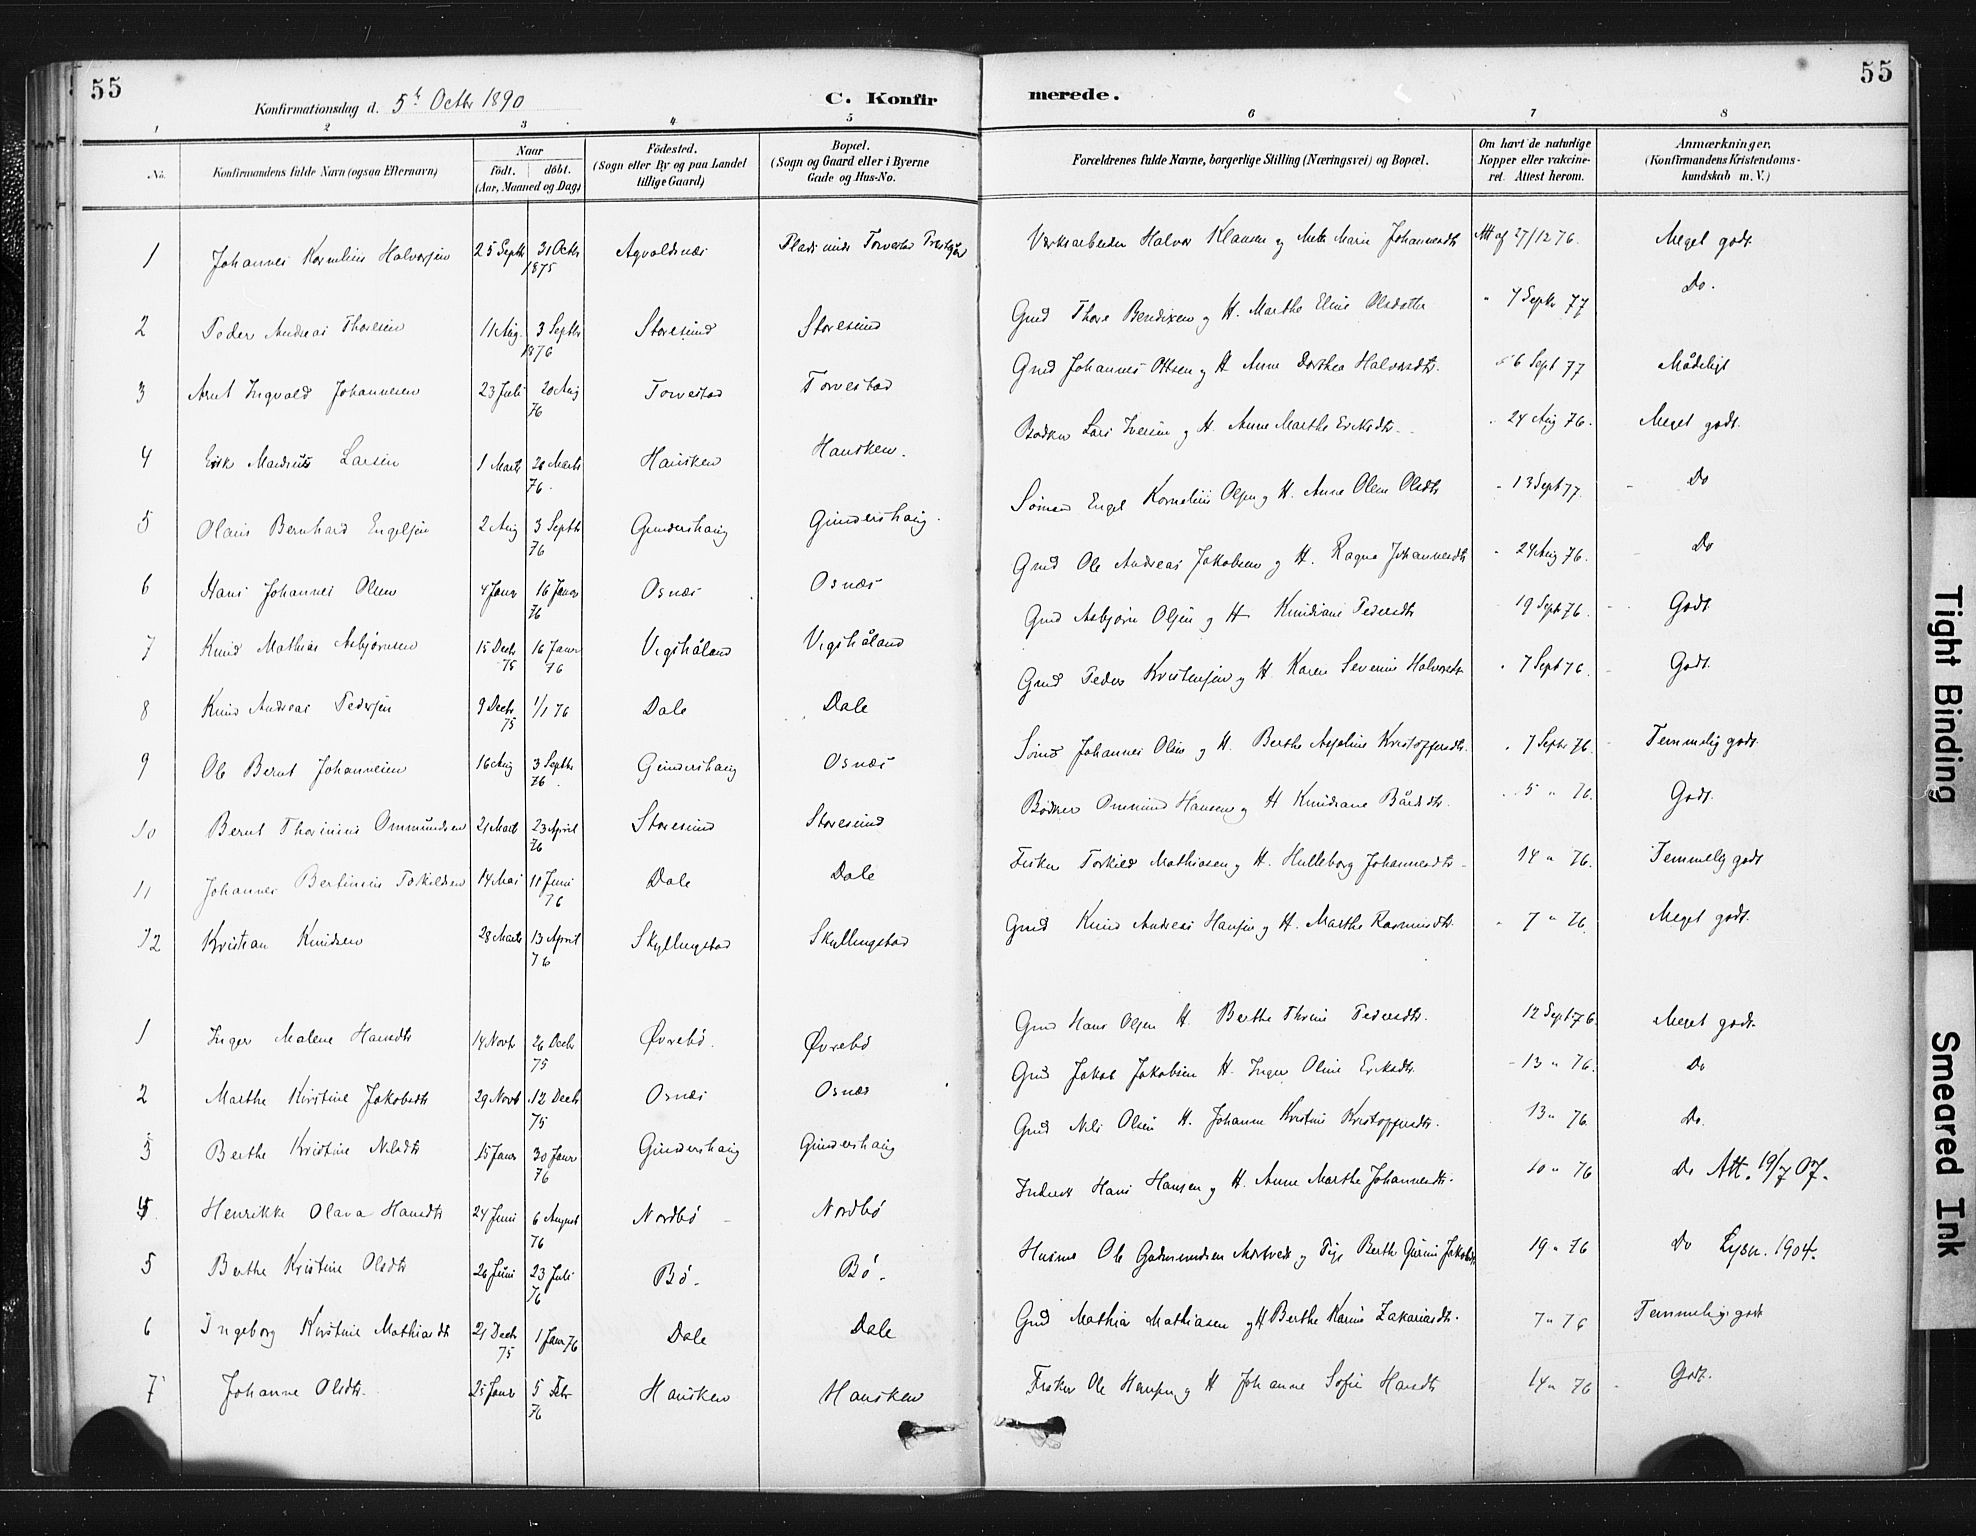 55
55
Konfirmationsdag d. 5t Octbr 1890
C. Konfirmerede.
1 2 3 4 5 6 7 8
No.
Konfirmandens fulde Navn (ogsaa Efternavn)
Naar
födt. döbt.
(Aar, Maaned og Dag)
Födested.
(Sogn eller By og paa Landet
tillige Gaard)
Bopæl.
(Sogn og Gaard eller i Byerne
Gade og Hus-No.
Forældrenes fulde Navne, borgerlige Stilling (Næringsvei) og Bopæl.
Om havt de naturlige
Kopper eller vakcine-
ret. Attest herom.
Anmærkninger.
(Konfirmandens Kristendoms-
kundskab m. V.)
1 Johannes Kornelius Halvorsen 25 Septbr 31 Octbr 1875 Agvaldsnæs Plads under Torvestad Halvor Klausen og Mette Marie Johannesdtr Att af 27/12 76. Meget godt.
2 Peder Andreas Thoresen 11 Aug. 3 Septbr 1876 Storesund Storesund Gmd Thore Bendixen og H. Marthe Eline Olsdatter " 7 Septr 77 Do.
3 Arnt Ingvald Johannesen 23 Juli 20 Aug 76 Torvestad Torvestad Gmd Johannes Ottsen og H Anne Dorthea Halvorsdtr. 6 Sept 77 Mådeligt
4 Erik Mardrius Larsen 1 Marts 26 Marts 76. Hausken Hausken. Bødker Lars Iversen og H. Anne Marthe Eriksdtr. 24 Aug 76. Meget godt.
5 Olaus Bernhard Engelsen 2 Aug 3 Septbr 76 Gundershaug Gundershaug. Sømand Engel Kornelius Olsen og H. Anne Olene Olsdtr " 13 Sept 77. Do
6 Hans Johannes Olsen 4 Janr 16 Janr 76 Osnæs Osnæs Gmd Ole Andreas Jakobsen og H. Ragna Johannesdtr " 24 Aug 76. Do
7 Knud Mathias Asbjørnsen 15 Decbr 75 16 Janr 76 Vigshåland Vigshåland Gmd Asbjørn Olsen og H Knudiane Pedersdtr 19 Sept 76. Godt.
8 Knud Andreas Pedersen 9 Decbr 75 1/1 76 Dale Dale Gmd Peder Kristensen og H. Karen Severine Halvorsdtr " 7 Sept 76. Godt.
9 Ole Bernt Johannesen 16 Aug 3 Septbr 76. Gundershaug Osnæs Sømd Johannes Olsen og H. Berthe Kristoffersdtr. " 7 Septr 76. Temmelig godt.
10 Bernt Thorinius Ommundsen 21 Marts 23 April 76 Storesund Storesund Bødker Ommund Hansen og H Knudiane Bårdsdtr. 5 " 76. Godt.
11 Johannes Bertinius Torkildsen 14 Mai 11 Juni 76 Dale Dale Fisker Torkild Mathiasen og H. Hulleborg Johannesdtr 14 " 76. Temmelig godt
12 Kristian Knudsen 28 Marts 13 April 76 Skyllingstad Skyllingstad Gmd Knud Andreas Hansen og H. Marthe Rasmusdtr. " 7 " 76. Meget godt.
1 Inger Malene Hansdtr 14 Novbr 26 Decbr 75 Øvrebø. Øvrebø Gmd Hans Olsen H. Berthe Thrine Pedersdtr. 12 Sept 76. Meget godt.
2 Marthe Kirstine Jakobsdtr 29 Novb 12 Decbr 75 Osnæs Osnæs Gmd Jakob Jakobsen H. Inger Oline Eriksdtr. 13 " 76. Do
3 Berthe Kristine Nilsdtr 15 Janr 30 Janr 76 Gundershaug Gundershaug Gmd Nils Olsen H. Johanne Kristine Kristoffersdtr. 13 " 76 Do.
4 Henrikke Olava Hansdtr 24 Juni 6 August 76 Nordbø Nordbø Inderst Hans Hansen og H. Anne Marthe Johannesdtr. 10 " 76 Do Att. 19/7 07.
5 Berthe Kristine Olsdtr 26 Juni 23 Juli 76 Bø. Bø. Husmd Ole Gudmundsen og Pige Berthe Gurine 19 " 76 Do Lysn. 1904.
6 Ingeborg Kirstine Mathiasdtr 21 Decbr 75 1 Janr 76 Dale Dale Gmd Mathias Mathiasen og H Berthe Karine Zakariasdtr. 7 " 76 Temmelig godt
7 Johanne Olsdtr. 25 Janr 5 Febr 76 Hausken Hausken Fisker Ole Hansen og H Johanne Sofie Hansdtr 14 " 76 Godt.
Tight Binding
Smeared Ink